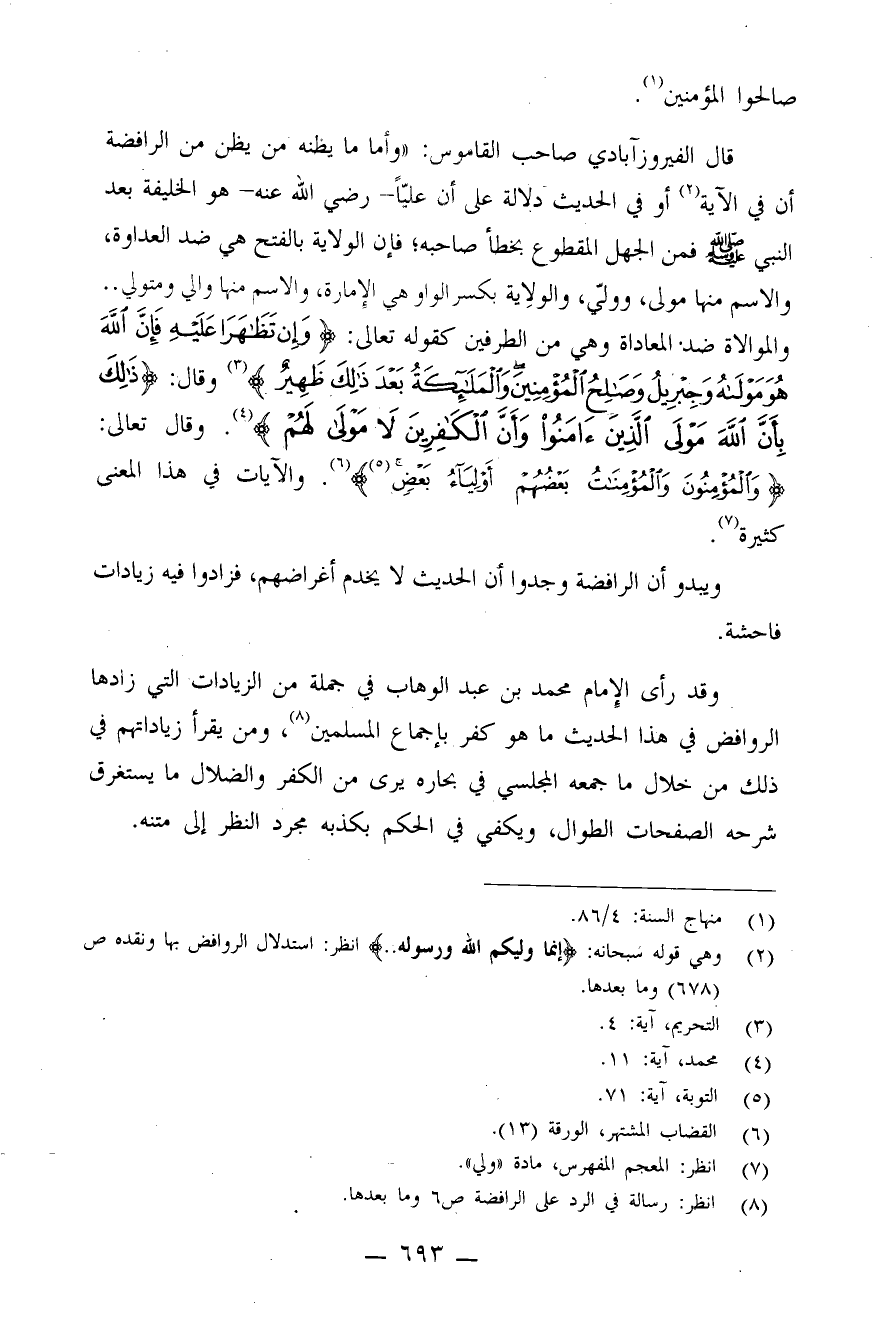 صالحوا المؤمنين(١).
قال الفيروزآبادي صاحب القاموس: «وأما ما يظنه من يظن من الرافضة
أن في الآية(٢) أو في الحديث دلالة على أن عليّاً – رضي الله عنه – هو الخليفة بعد
النبي ﷺ فمن الجهل المقطوع بخطأ صاحبه؛ فإن الولاية بالفتح هي ضد العداوة،
والاسم منها مولى، ووليّ، والولاية بكسر الواو هي الإمارة، والاسم منها والي ومتولي..
والموالاة ضد المعاداة وهي من الطرفين كقوله تعالى: ﴿وَإِن تَظَٰهَرَا عَلَيْهِ فَإِنَّ ٱللَّهَ
هُوَ مَوْلَىٰهُ وَجِبْرِيلُ وَصَٰلِحُ ٱلْمُؤْمِنِينَ ۖ وَٱلْمَلَٰٓئِكَةُ بَعْدَ ذَٰلِكَ ظَهِيرٌ﴾(٣) وقال: ﴿ذَٰلِكَ
بِأَنَّ ٱللَّهَ مَوْلَى ٱلَّذِينَ ءَامَنُوا۟ وَأَنَّ ٱلْكَٰفِرِينَ لَا مَوْلَىٰ لَهُمْ﴾(٤). وقال تعالى:
﴿وَٱلْمُؤْمِنُونَ وَٱلْمُؤْمِنَٰتُ بَعْضُهُمْ أَوْلِيَآءُ بَعْضٍ ۚ(٥)﴾(٦). والآيات في هذا المعنى
كثيرة(٧).
ويبدو أن الرافضة وجدوا أن الحديث لا يخدم أغراضهم، فزادوا فيه زيادات
فاحشة.
وقد رأى الإمام محمد بن عبد الوهاب في جملة من الزيادات التي زادها
الروافض في هذا الحديث ما هو كفر بإجماع المسلمين(٨)، ومن يقرأ زياداتهم في
ذلك من خلال ما جمعه المجلسي في بحاره يرى من الكفر والضلال ما يستغرق
شرحه الصفحات الطوال، ويكفي في الحكم بكذبه مجرد النظر إلى متنه.
(١) منهاج السنة: ٨٦/٤.
(٢) وهي قوله سبحانه: ﴿إنما وليكم الله ورسوله..﴾ انظر: استدلال الروافض بها ونقده ص
(٦٧٨) وما بعدها.
(٣) التحريم، آية: ٤.
(٤) محمد، آية: ١١.
(٥) التوبة، آية: ٧١.
(٦) القضاب المشتهر، الورقة (١٣).
(٧) انظر: المعجم المفهرس، مادة «ولي».
(٨) انظر: رسالة في الرد على الرافضة ص٦ وما بعدها.
— ٦٩٣ —